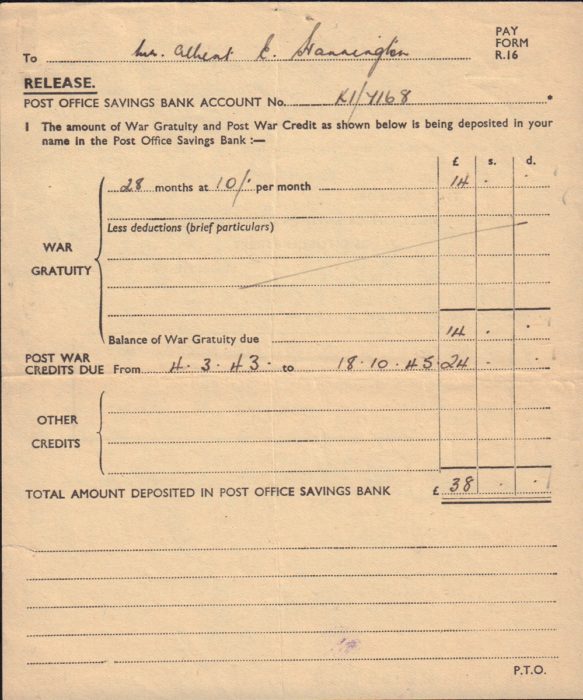 PAY
FORM
R.16
To Mr. Albert E. Hannington
RELEASE.
POST OFFICE SAVINGS BANK ACCOUNT No. K1/4168
1 The amount of War Gratuity and Post War Credit as shown below is being deposited in your
name in the Post Office Savings Bank :—
£ s. d.
28 months at 10/- per month 14 . .
Less deductions (brief particulars)
WAR
GRATUITY
Balance of War Gratuity due 14 . .
POST WAR
CREDITS DUE From 4.3.43. to 18.10.45. 24 . .
OTHER
CREDITS
TOTAL AMOUNT DEPOSITED IN POST OFFICE SAVINGS BANK £ 38 . .
P.T.O.